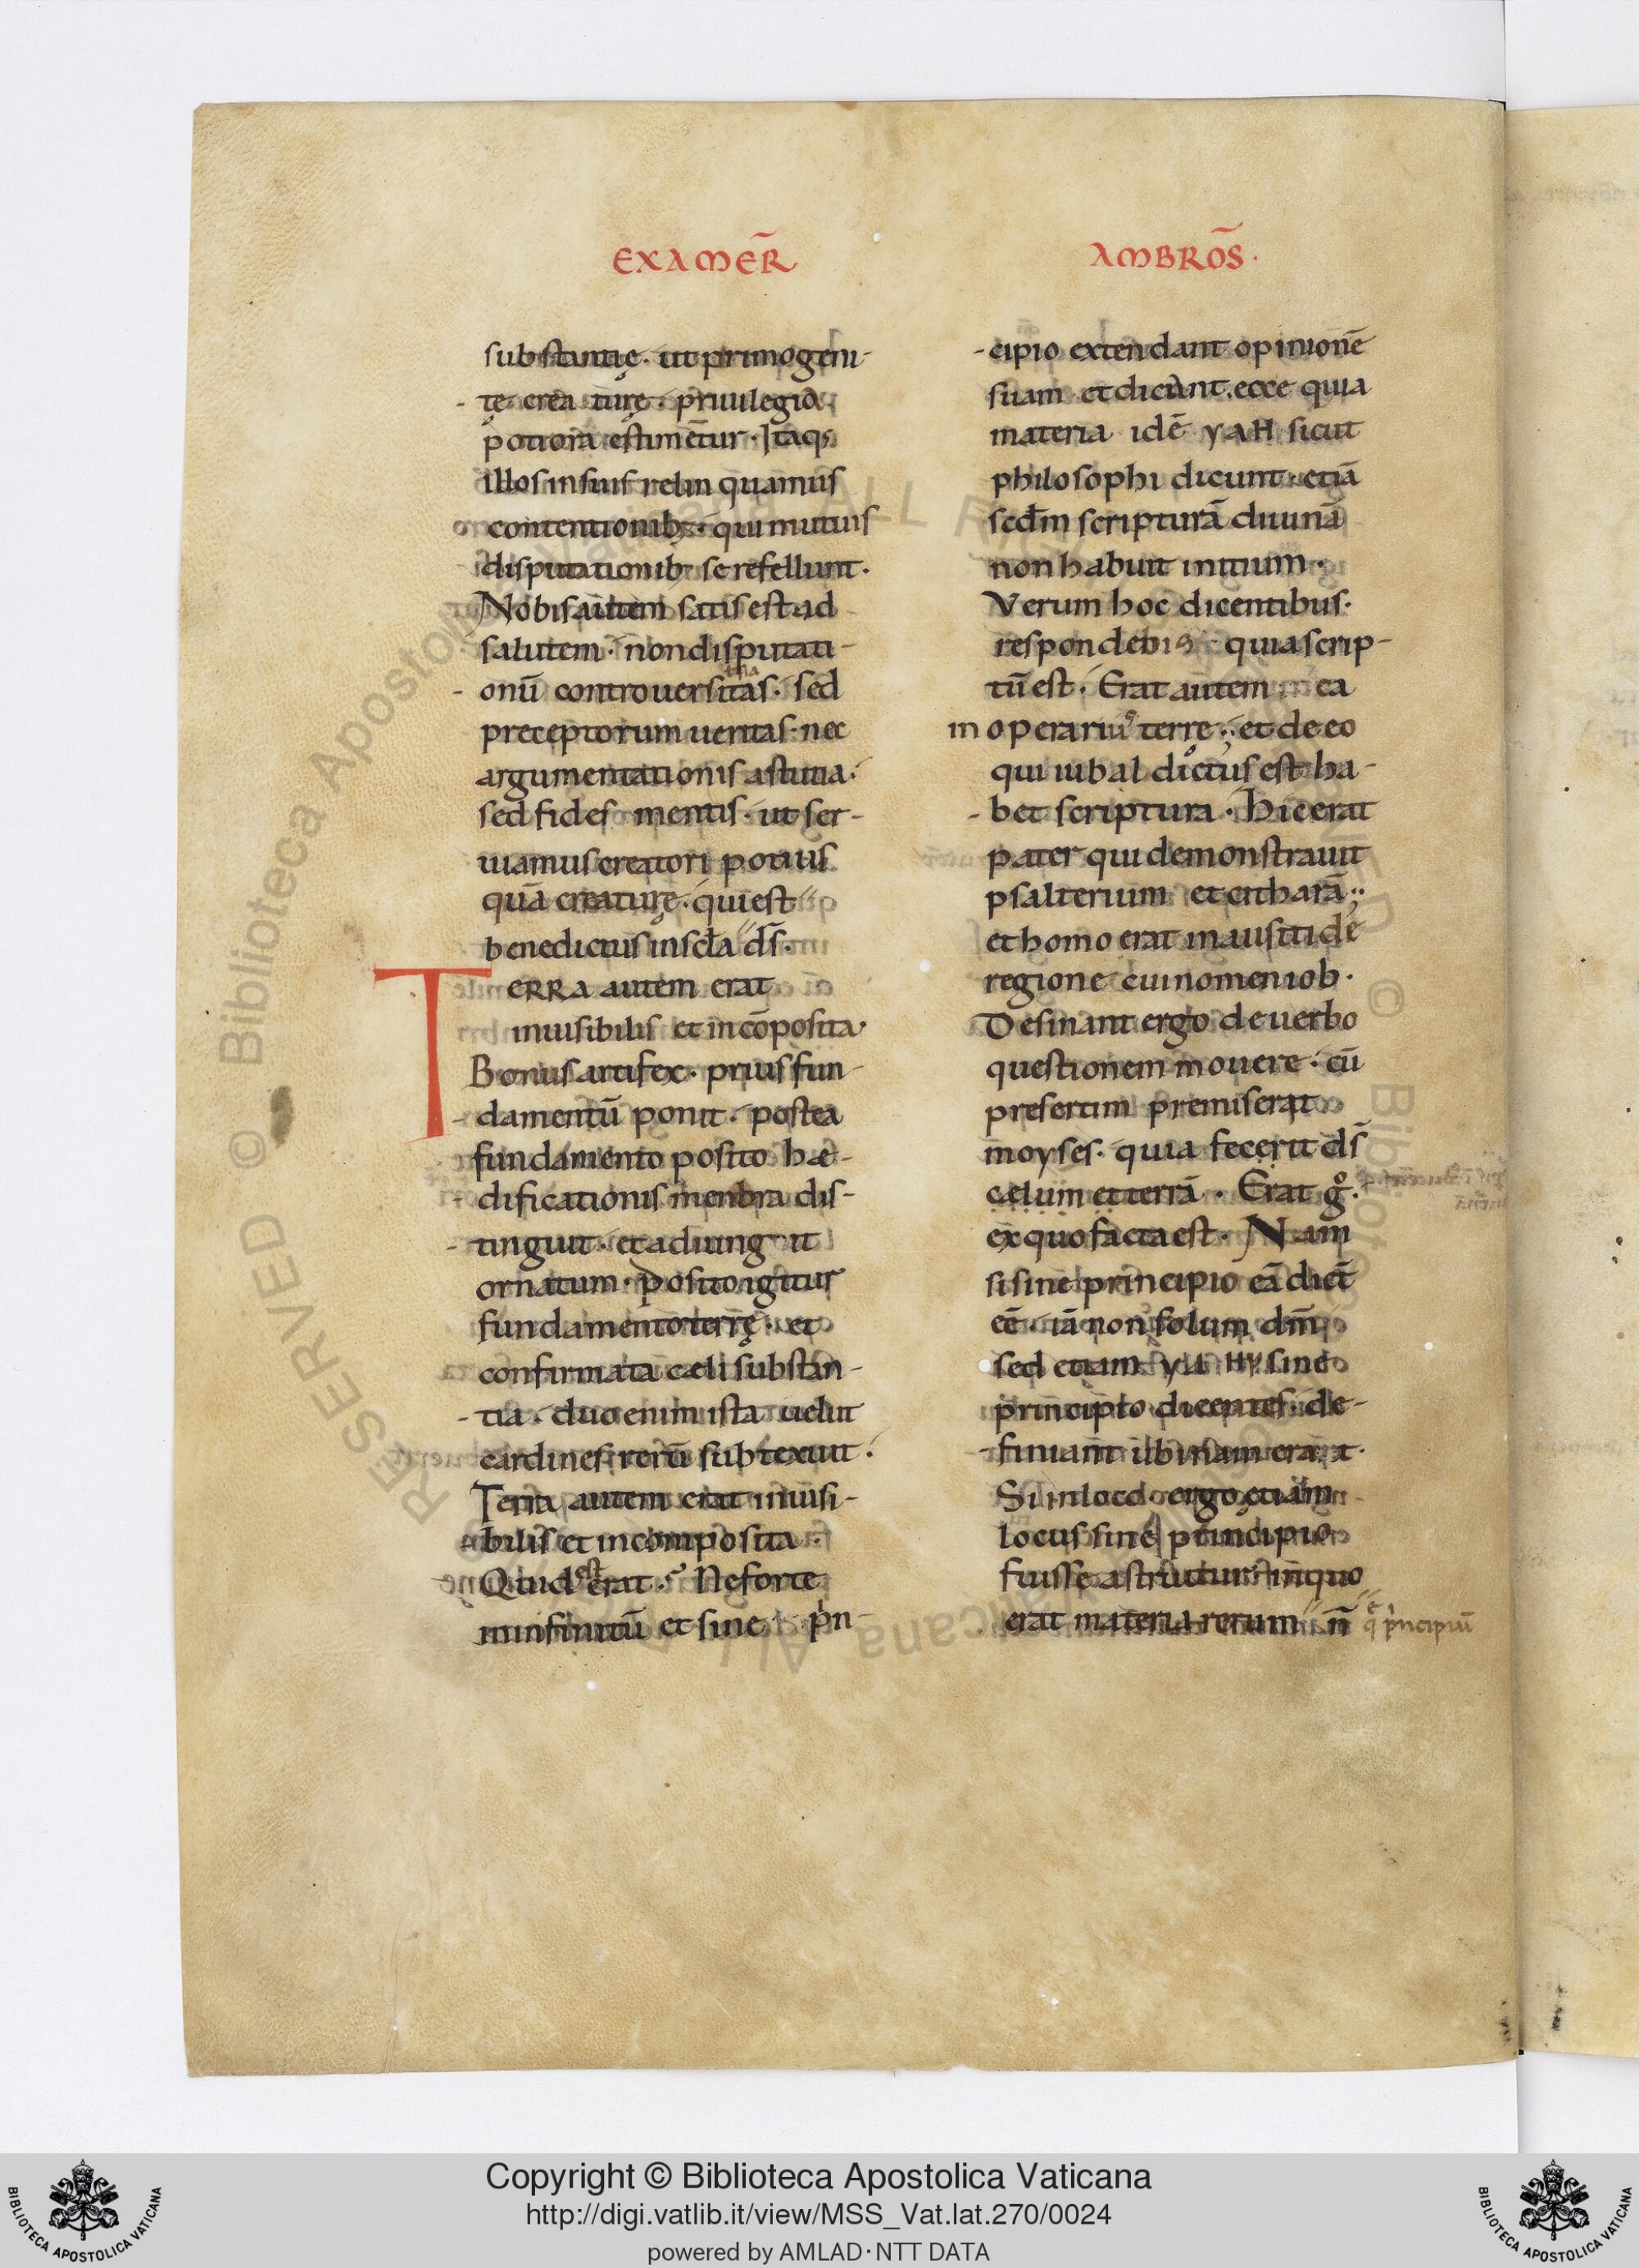 EXAMER̄
AMBROS̄·
substantię · ut primogeni-
tę creaturę · priuilegio
potiora estimētur · Itaq;
illos in suis relinquamus
contentionib; · qui mutuis
disputationib; se refellunt ·
Nobis autem satis est ad
salutem · non disputati-
onū controuersitas · sed
preceptorum ueritas · nec
argumentationis astutia ·
sed fides mentis · ut ser-
uiamus creatori potius
quā creaturę · qui est
benedictus in sc̄la ds̄ ·
TERRA autem erat
inuisibilis et incōposita ·
Bonus artifex · prius fun-
damentū ponit · postea
fundamento posito hæ-
dificationis menbra dis-
tinguit · et adiungit
ornatum · Posito igitur
fundamento terrę · et
confirmata cæli substan-
tia · duo enim ista uelut
cardines rerū subtexuit ·
Terra autem erat inuisi-
bilis et incomposita ·
Quid est erat · Ne forte
in infinitū et sine prin-
cipio extendant opinionē
suam et dicunt · ecce quia
materia idē yаH sicut
philosophi dicunt · etiā
scd̄m scripturā diuinā
non habuit initium ·
Verum hoc dicentibus ·
respondebis quia scrip-
tū est · Erat autem ca
in operarius terre · et de eo
qui iubal dictus est ha-
bet scriptura · Hic erat
pater qui demonstrauit
psalterium et citharā ;
et homo erat in ausitide
regione cui nomen iob ·
Desinant ergo de uerbo
questionem mouere · cū
presertim premiserat
moyses · quia fecerit ds̄
cælum et terrā · Erat g̊ ·
ex quo facta est · Nam
si sine principio eā dict̄
eē · iā non solum dm̄
sed etiam ya HN sine
principio dicentes · de-
finiant ubinam erat ·
Si in loco · ergo etiam
locus sine principio
fuisse astruitur in quo
erat materia rerum n̄
q̄ principiū
Copyright © Biblioteca Apostolica Vaticana
http://digi.vatlib.it/view/MSS_Vat.lat.270/0024
powered by AMLAD·NTT DATA
BIBLIOTECA APOSTOLICA VATICANA
BIBLIOTECA APOSTOLICA VATICANA